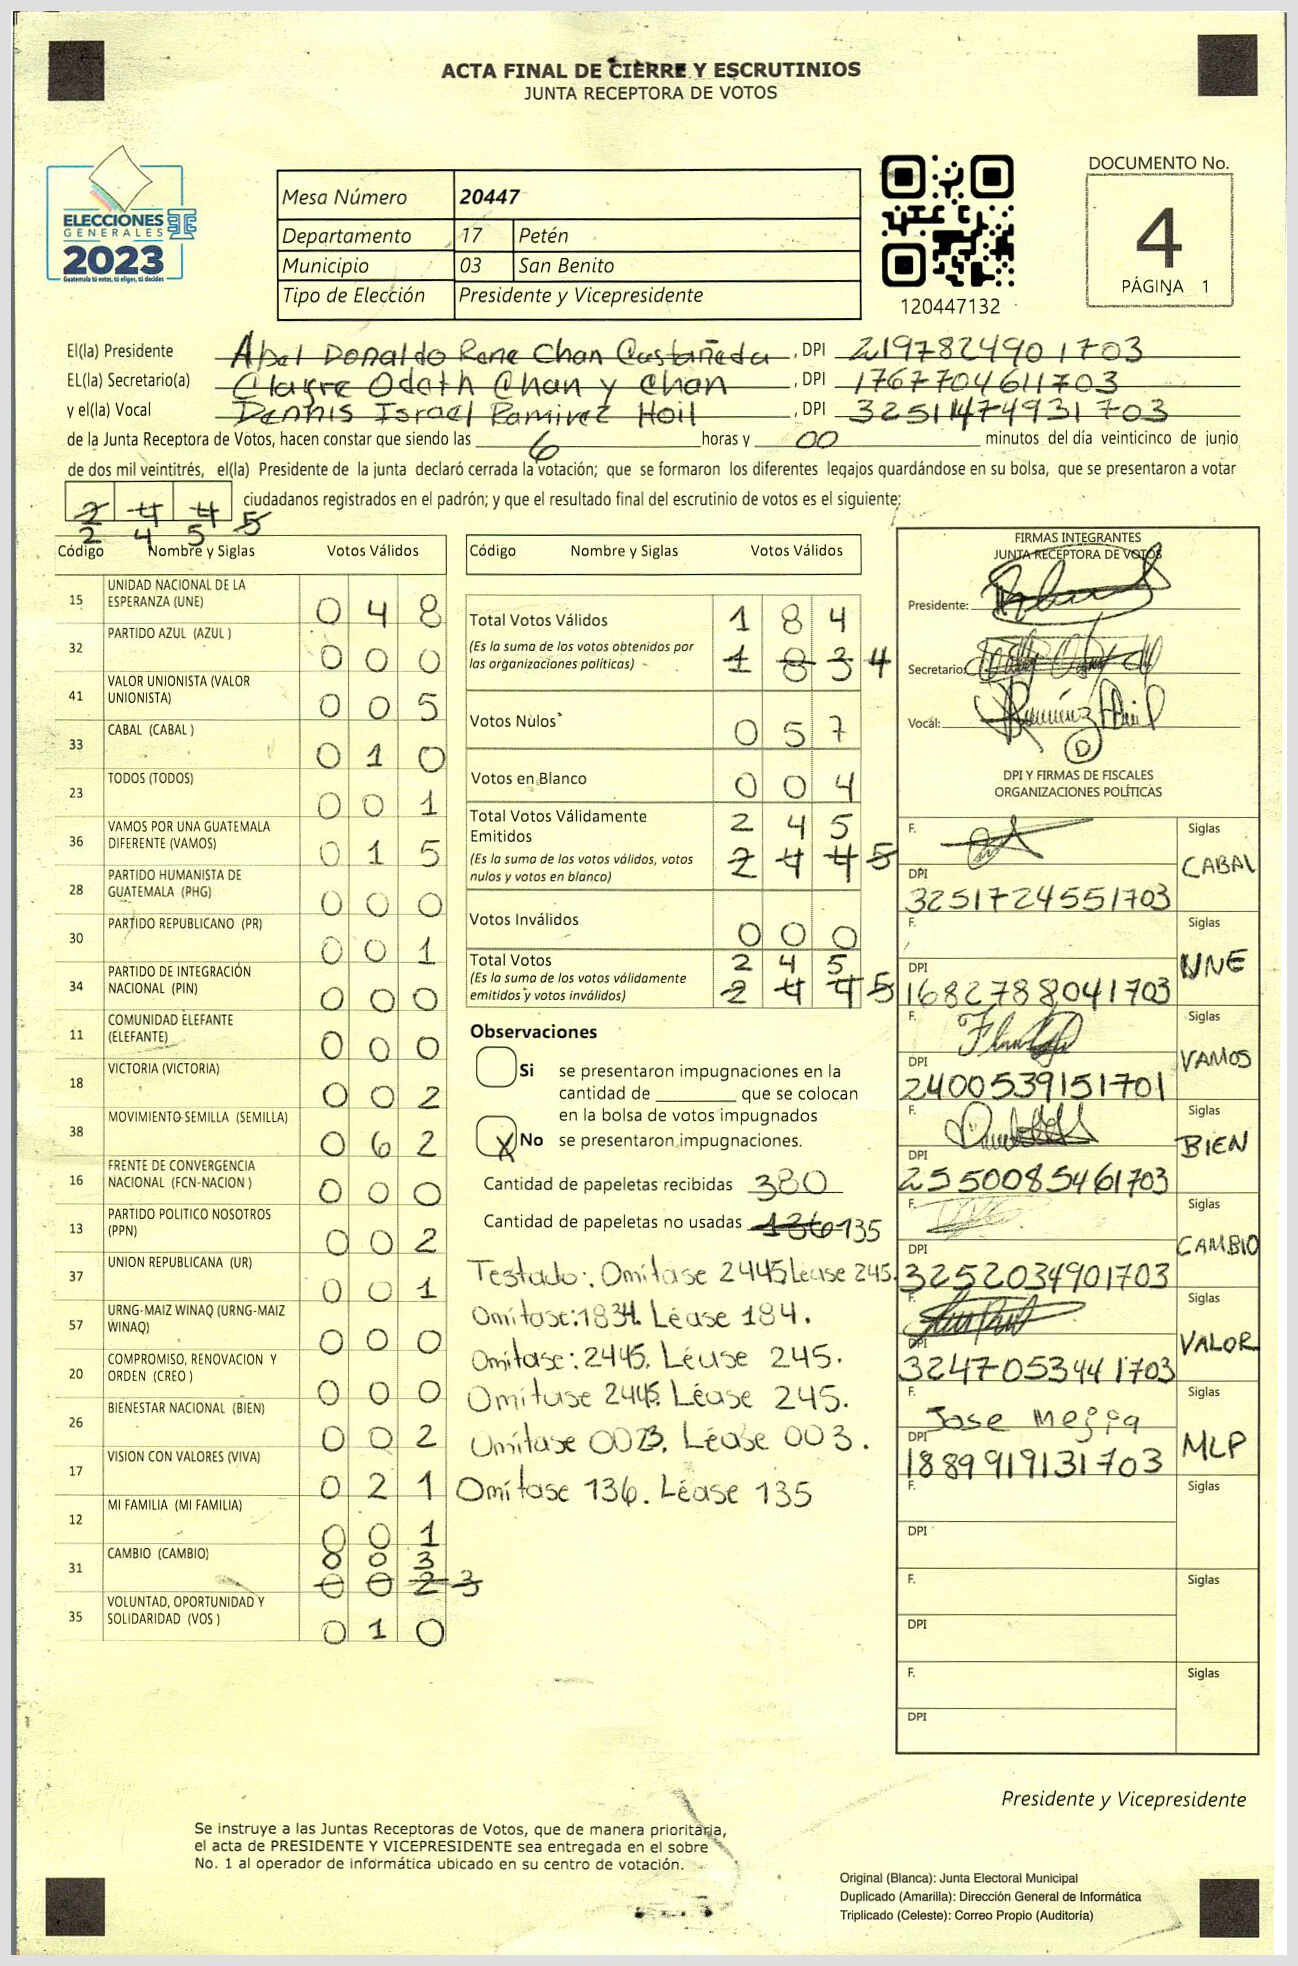 ACTA FINAL DE CIERRE Y ESCRUTINIOS
JUNTA RECEPTORA DE VOTOS
ELECCIONES
GENERALES
2023
Guatemala tú votas, tú eliges, tú decides
Mesa Número 20447
Departamento 17 Petén
Municipio 03 San Benito
Tipo de Elección Presidente y Vicepresidente
120447132
DOCUMENTO No.
4
PÁGINA 1
El(la) Presidente Abel Donaldo Rene Chan Castañeda, DPI 2197824901703
EL(la) Secretario(a) Clayre Odeth Chan y Chan, DPI 1767704611703
y el(la) Vocal Dennis Israel Ramirez Hoil, DPI 3251474931703
de la Junta Receptora de Votos, hacen constar que siendo las 6 horas y 00 minutos del día veinticinco de junio
de dos mil veintitrés, el(la) Presidente de la junta declaró cerrada la votación; que se formaron los diferentes legajos quardándose en su bolsa, que se presentaron a votar
2 4 4 5 ciudadanos registrados en el padrón; y que el resultado final del escrutinio de votos es el siguiente:
2 4 5
Código Nombre y Siglas Votos Válidos
15 UNIDAD NACIONAL DE LA ESPERANZA (UNE) 0 4 8
32 PARTIDO AZUL (AZUL ) 0 0 0
41 VALOR UNIONISTA (VALOR UNIONISTA) 0 0 5
33 CABAL (CABAL ) 0 1 0
23 TODOS (TODOS) 0 0 1
36 VAMOS POR UNA GUATEMALA DIFERENTE (VAMOS) 0 1 5
28 PARTIDO HUMANISTA DE GUATEMALA (PHG) 0 0 0
30 PARTIDO REPUBLICANO (PR) 0 0 1
34 PARTIDO DE INTEGRACIÓN NACIONAL (PIN) 0 0 0
11 COMUNIDAD ELEFANTE (ELEFANTE) 0 0 0
18 VICTORIA (VICTORIA) 0 0 2
38 MOVIMIENTO SEMILLA (SEMILLA) 0 6 2
16 FRENTE DE CONVERGENCIA NACIONAL (FCN-NACION ) 0 0 0
13 PARTIDO POLITICO NOSOTROS (PPN) 0 0 2
37 UNION REPUBLICANA (UR) 0 0 1
57 URNG-MAIZ WINAQ (URNG-MAIZ WINAQ) 0 0 0
20 COMPROMISO, RENOVACION Y ORDEN (CREO ) 0 0 0
26 BIENESTAR NACIONAL (BIEN) 0 0 2
17 VISION CON VALORES (VIVA) 0 2 1
12 MI FAMILIA (MI FAMILIA) 0 0 1
31 CAMBIO (CAMBIO) 0 0 3
0 0 2 3
35 VOLUNTAD, OPORTUNIDAD Y SOLIDARIDAD (VOS ) 0 1 0
Código Nombre y Siglas Votos Válidos
Total Votos Válidos 1 8 4
(Es la suma de los votos obtenidos por las organizaciones políticas) 1 8 3 4
Votos Nulos 0 5 7
Votos en Blanco 0 0 4
Total Votos Válidamente Emitidos 2 4 5
(Es la suma de los votos válidos, votos nulos y votos en blanco) 2 4 4 5
Votos Inválidos 0 0 0
Total Votos 2 4 5
(Es la suma de los votos válidamente emitidos y votos inválidos) 2 4 4 5
Observaciones
Si se presentaron impugnaciones en la
cantidad de ________ que se colocan
en la bolsa de votos impugnados
X No se presentaron impugnaciones.
Cantidad de papeletas recibidas 380
Cantidad de papeletas no usadas 136 135
Testado: Omitase 2445 Lease 245.
Omitase: 1834. Léase 184.
Omitase: 2445. Léase 245.
Omitase 2445. Léase 245.
Omitase 0023. Léase 003.
Omitase 136. Léase 135
FIRMAS INTEGRANTES
JUNTA RECEPTORA DE VOTOS
Presidente:
Secretario:
Vocal: Ramirez Hoil
D
DPI Y FIRMAS DE FISCALES
ORGANIZACIONES POLÍTICAS
F. Siglas CABAL
DPI 3251724551703
F. Siglas UNE
DPI 1682788041703
F. Siglas VAMOS
DPI 2400539151701
F. Siglas BIEN
DPI 2550085461703
F. Siglas CAMBIO
DPI 3252034901703
F. Siglas VALOR
DPI 3247053441703
F. Jose Mejia Siglas MLP
DPI 1889919131703
F. Siglas
DPI
F. Siglas
DPI
F. Siglas
DPI
Presidente y Vicepresidente
Se instruye a las Juntas Receptoras de Votos, que de manera prioritaria,
el acta de PRESIDENTE Y VICEPRESIDENTE sea entregada en el sobre
No. 1 al operador de informática ubicado en su centro de votación.
Original (Blanca): Junta Electoral Municipal
Duplicado (Amarilla): Dirección General de Informática
Triplicado (Celeste): Correo Propio (Auditoría)